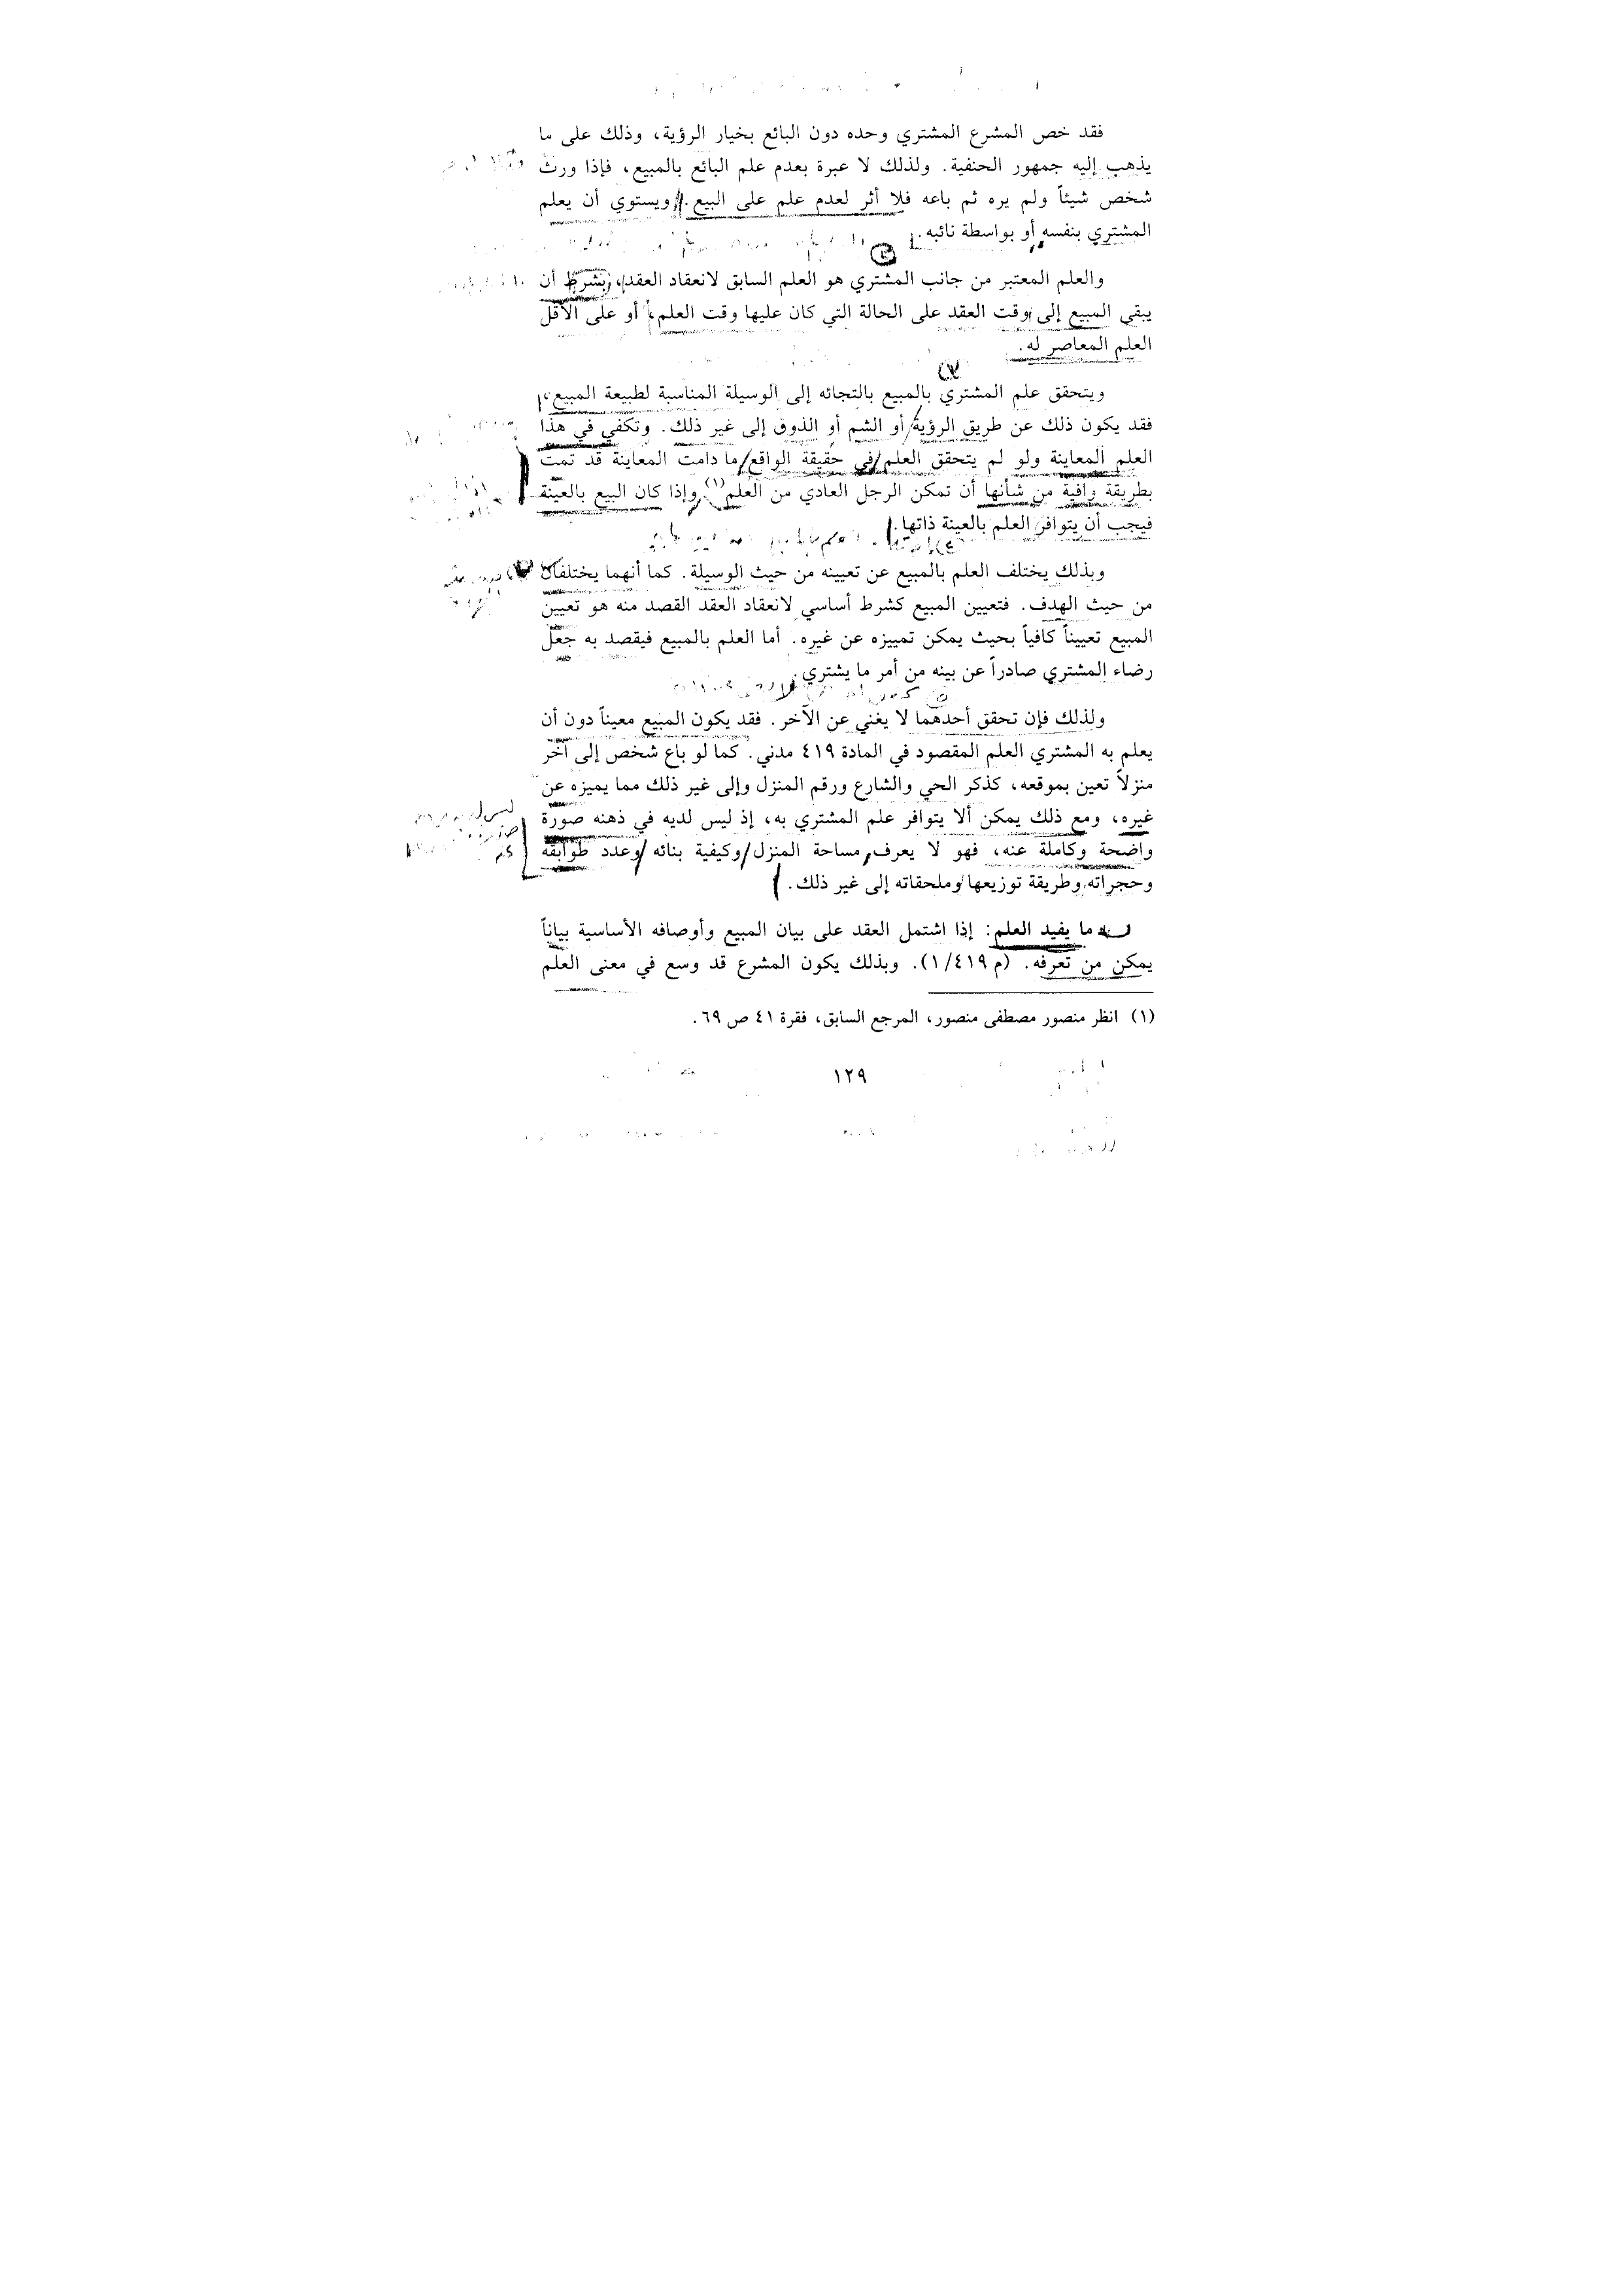 فقد خص المشرع المشتري وحده دون البائع بخيار الرؤية، وذلك على ما
يذهب إليه جمهور الحنفية. ولذلك لا عبرة بعدم علم البائع بالمبيع، فإذا ورث
شخص شيئاً ولم يره ثم باعه فلا أثر لعدم علم على البيع. ويستوي أن يعلم
المشتري بنفسه أو بواسطة نائبه.
والعلم المعتبر من جانب المشتري هو العلم السابق لانعقاد العقد، بشرط أن
يبقي المبيع إلى وقت العقد على الحالة التي كان عليها وقت العلم، أو على الأقل
العلم المعاصر له.
ويتحقق علم المشتري بالمبيع بالتجائه إلى الوسيلة المناسبة لطبيعة المبيع،
فقد يكون ذلك عن طريق الرؤية أو الشم أو الذوق إلى غير ذلك. وتكفي في هذا
العلم المعاينة ولو لم يتحقق العلم في حقيقة الواقع ما دامت المعاينة قد تمت
بطريقة وافية من شأنها أن تمكن الرجل العادي من العلم(١) وإذا كان البيع بالعينة
فيجب أن يتوافر العلم بالعينة ذاتها.
وبذلك يختلف العلم بالمبيع عن تعيينه من حيث الوسيلة. كما أنهما يختلفان
من حيث الهدف. فتعيين المبيع كشرط أساسي لانعقاد العقد القصد منه هو تعيين
المبيع تعييناً كافياً بحيث يمكن تمييزه عن غيره. أما العلم بالمبيع فيقصد به جعل
رضاء المشتري صادراً عن بينه من أمر ما يشتري.
ولذلك فإن تحقق أحدهما لا يغني عن الآخر. فقد يكون المبيع معيناً دون أن
يعلم به المشتري العلم المقصود في المادة ٤١٩ مدني. كما لو باع شخص إلى آخر
منزلاً تعين بموقعه، كذكر الحي والشارع ورقم المنزل وإلى غير ذلك مما يميزه عن
غيره، ومع ذلك يمكن ألا يتوافر علم المشتري به، إذ ليس لديه في ذهنه صورة
واضحة وكاملة عنه، فهو لا يعرف مساحة المنزل وكيفية بنائه وعدد طوابقه
وحجراته وطريقة توزيعها وملحقاته إلى غير ذلك.
ما يفيد العلم: إذا اشتمل العقد على بيان المبيع وأوصافه الأساسية بياناً
يمكن من تعرفه. (م ١/٤١٩). وبذلك يكون المشرع قد وسع في معنى العلم
(١) انظر منصور مصطفى منصور، المرجع السابق، فقرة ٤١ ص ٦٩.
١٢٩